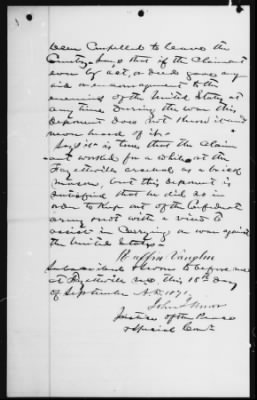 been Compelled to leave the
County. Says that if the Claimant
ever by act, or deed gave any
aid or encouragement to the
enemies of the United States at
any time during the war this
deponent does not know it and
never heard of it.
Says it is true that the Claim
ant worked for a while at the
Fayetteville arsenal as a brick
mason, but this deponent is
satisfied that he did so in
order to keep out of the Confederate
army & not with a view to
assist in Carrying on war against
the United States.
Ruffin Vaughn
Subscribed & sworn to before me
at Fayetteville NC this 18th day
of September A.D. 1871.
John
Justice of the Peace
& Special Com'r